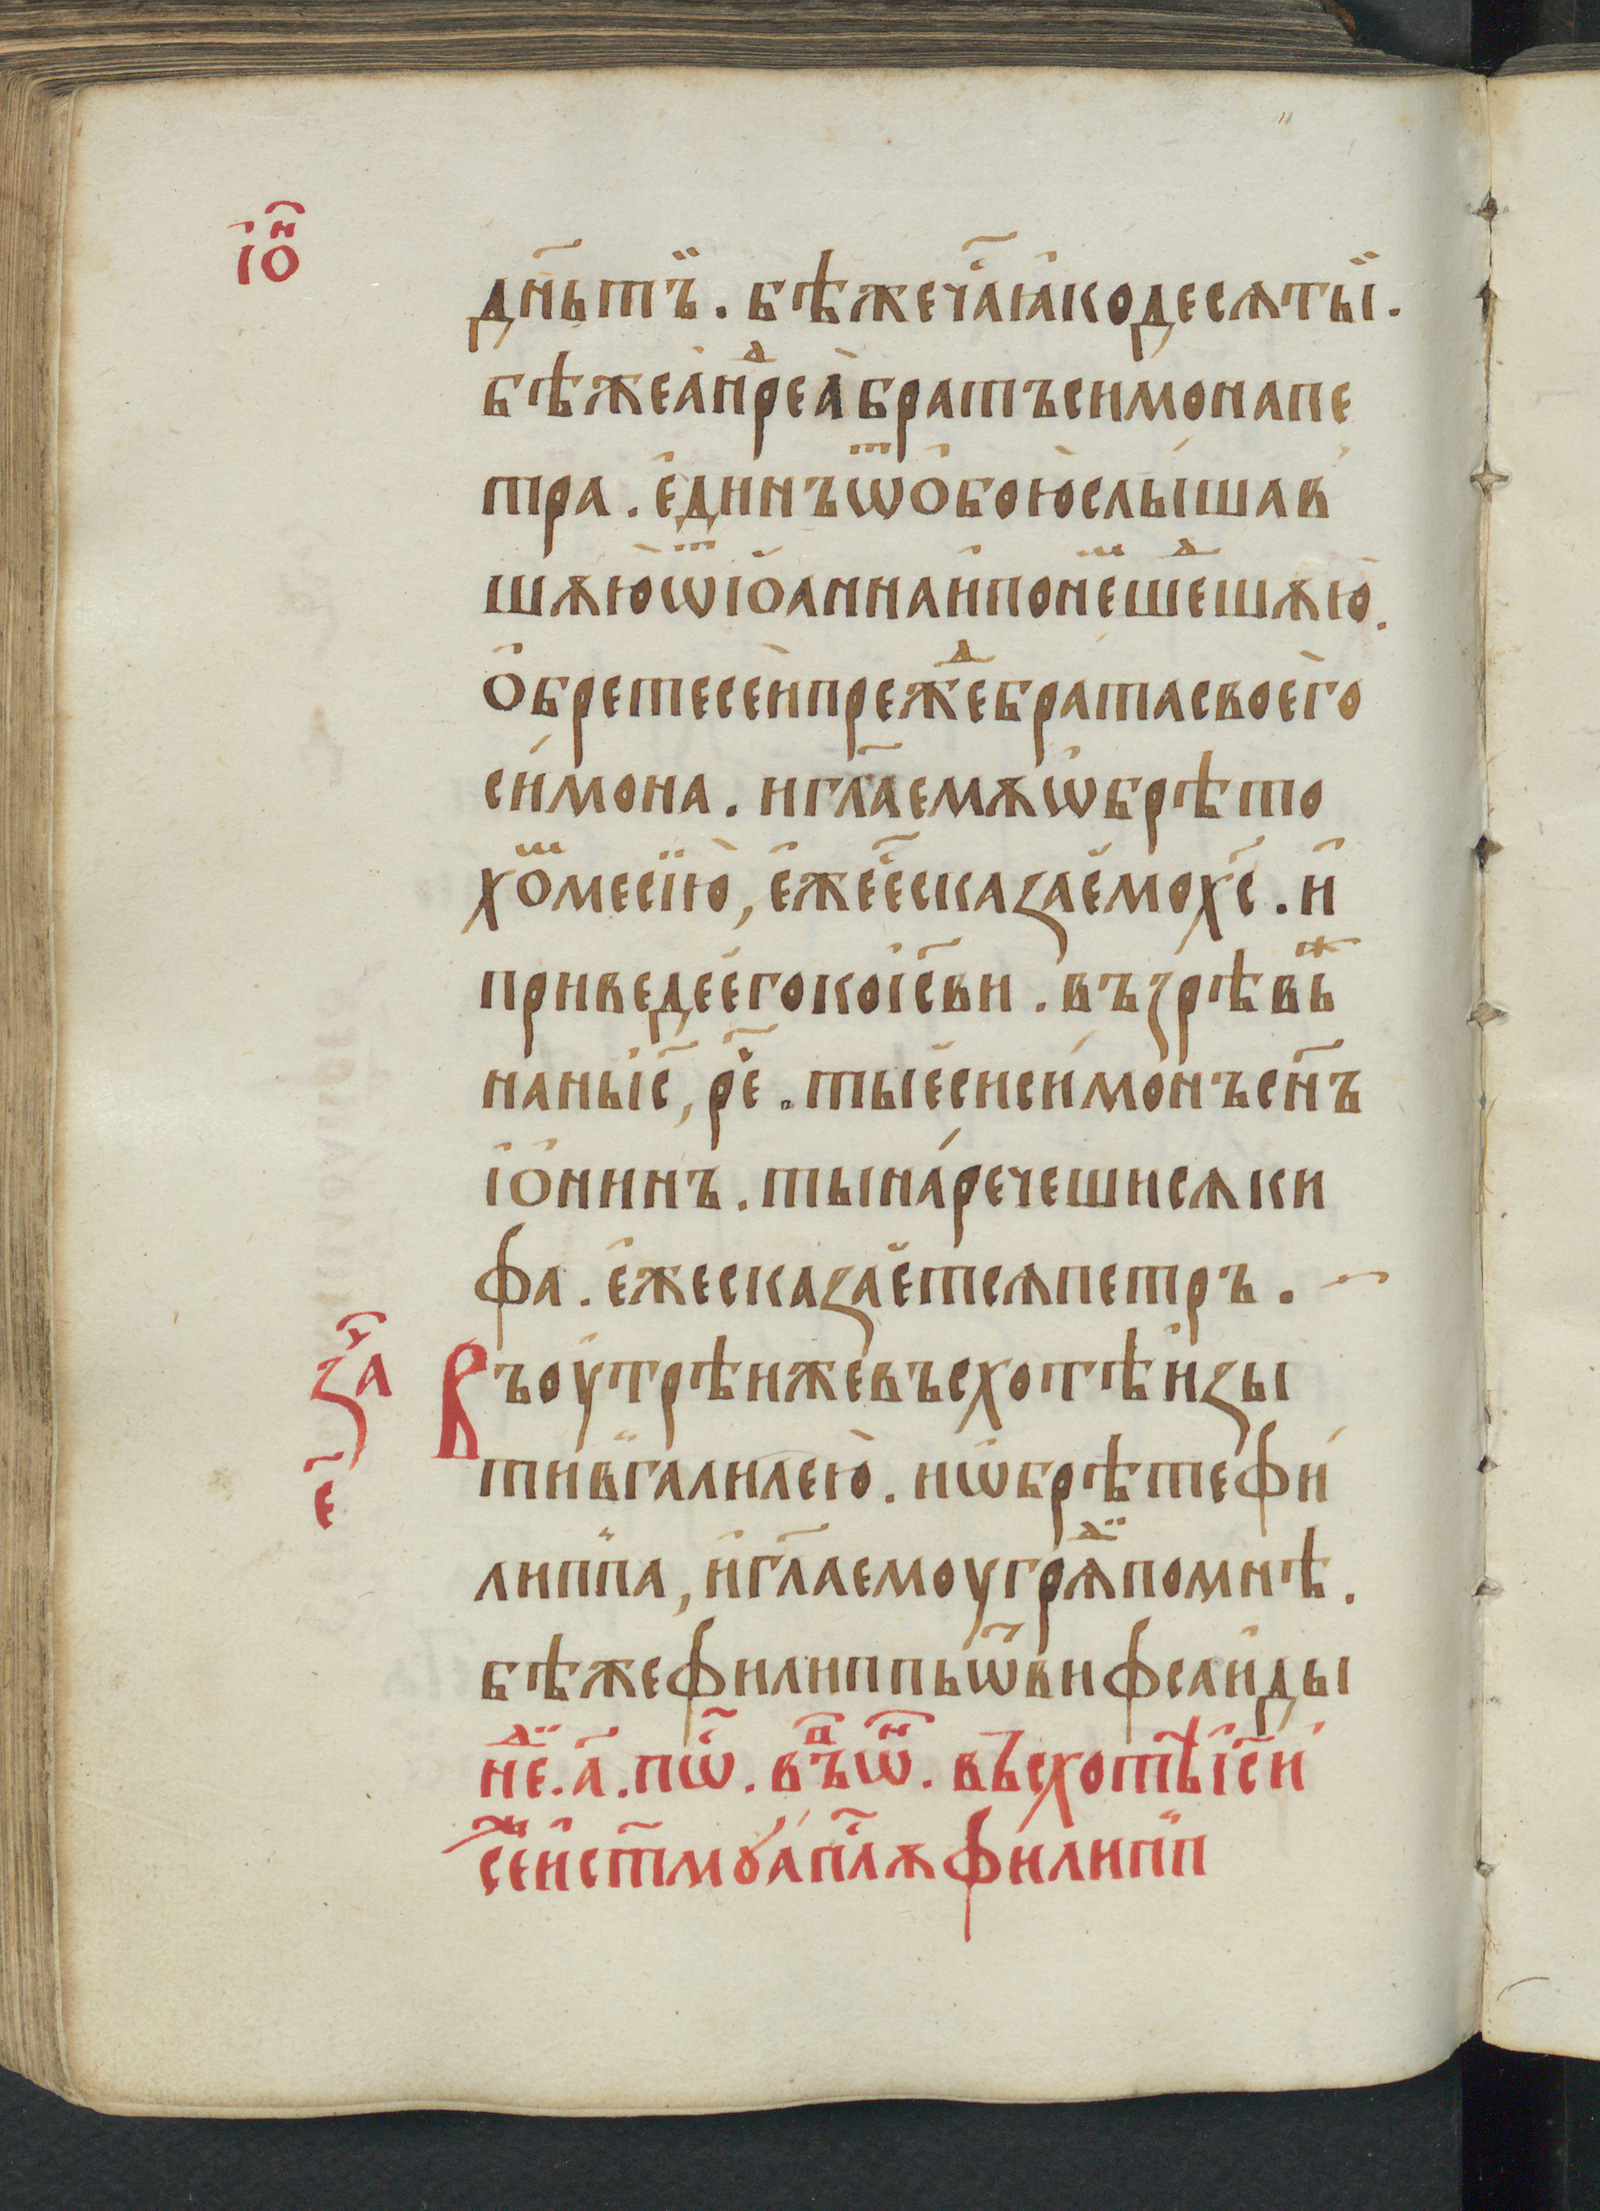 іѡ҃н
дн҃ьтъ̈ . бѣжеча҃іа҆кодесѧтыї .
бѣжеа҆нⷣреа҆братъсимонапе
тра . е҆динъѿо҆бою҆слы́шав
шѫю҆ѿіо҆аннаи҆поне́шⷲеⷣшѫю̀ .
о҆бретесеи҆преⷤжⷣебратасвоего
си́мона . игл҃аемѫѡ҆брѣто
хоⷲмесїю̀ , е҆жее҆с҃сказае҆мохс҃ . и҆
приведее҆гокоіс҃ви . възрѣвь́ж
наньіс҃ , рⷱ҇е . тыіе҆сиси́мо́нъсн҃ъ
іо҆нинъ . тына́речешисѧки
фа . е҆жесказае҆тсѧпетръ .
за҃ⷱ
е҃
Въоу҆трѣижевъсхотѣи҆зы
тив̾галилею̀ . иѡ҆брѣтефи́
лип̾па , и҆гл҃аемоугрѧⷣ̈помнѣ .
бѣжефилиппьѿви́фсаи҆ды
неⷣ҇ . а҃ . пѡⷭ҇ . въⷫѡⷩ҇ . въсхотѣіс҃и́
сеⷤ҇и҆ст҃мꙋа҆пⷭ҇лѫфи́лип̾п